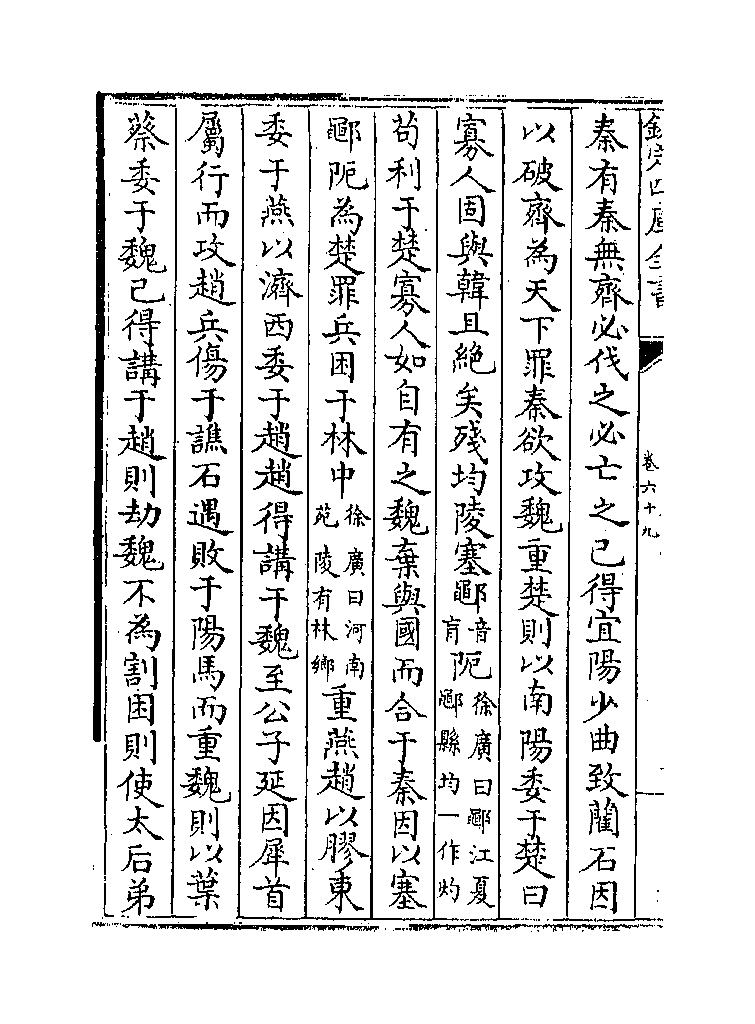 欽定四庫全書
卷六十九
秦有秦無齊必伐之必亡之已得宜陽少曲致藺石因
以破齊為天下罪秦欲攻魏重楚則以南陽委于楚曰
寡人固與韓且絶矣殘均陵塞鄳音盲阨徐廣曰鄳江夏鄳縣均一作灼
苟利于楚寡人如自有之魏棄與國而合于秦因以塞
鄳阨為楚罪兵困于林中徐廣曰河南苑陵有林鄉重燕趙以膠東
委于燕以濟西委于趙趙得講于魏至公子延因犀首
屬行而攻趙兵傷于譙石遇敗于陽馬而重魏則以葉
蔡委于魏已得講于趙則劫魏不為割困則使太后弟